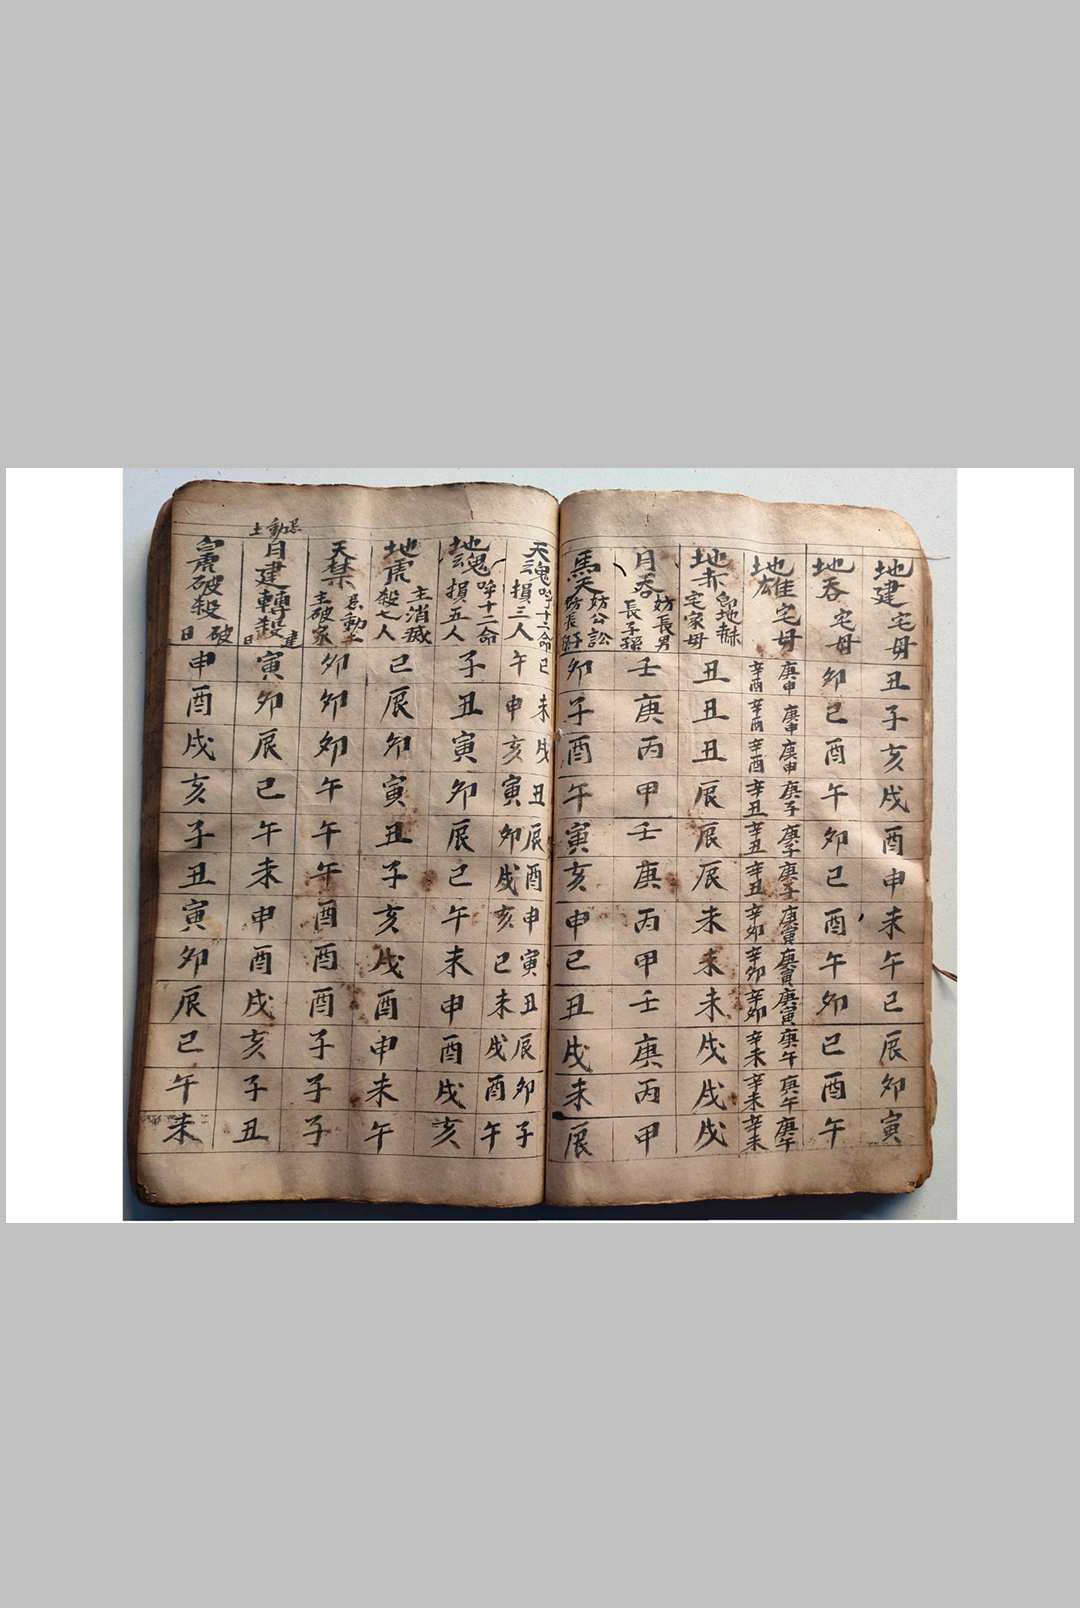 地建宅母丑子亥戌酉申未午巳辰卯寅
地吞宅母卯巳酉午卯巳酉午卯巳酉午
地雄宅母
庚申庚申庚申庚子庚子庚子庚寅庚寅庚寅庚午庚午庚午
辛酉辛酉辛酉辛丑辛丑辛丑辛卯辛卯辛卯辛未辛未辛未
地赤
即地赫
宅家母
丑丑丑辰辰辰未未未戌戌戌
月吞
妨長男
長子孫
壬庚丙甲壬庚丙甲壬庚丙甲
馬天
妨公訟
妨長
卯子酉午寅亥申巳丑戌未辰
天魂
呼十二命
損三人
巳未戌丑辰酉申寅丑辰卯子
午申亥寅卯戌亥巳未戌酉午
地魂
呼十二命
損五人
子丑寅卯辰巳午未申酉戌亥
地虎
主消滅
殺七人
巳辰卯寅丑子亥戌酉申未午
天禁
忌動土
主破家
卯卯卯午午午酉酉酉子子子
忌動土
月建轉殺
建日
寅卯辰巳午未申酉戌亥子丑
白虎破殺
破日
申酉戌亥子丑寅卯辰巳午未